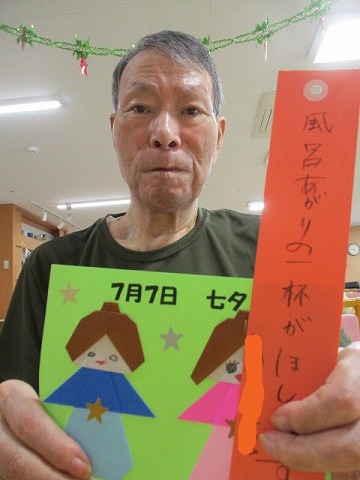 7月7日 七夕
風呂あがりの一杯がほし
す